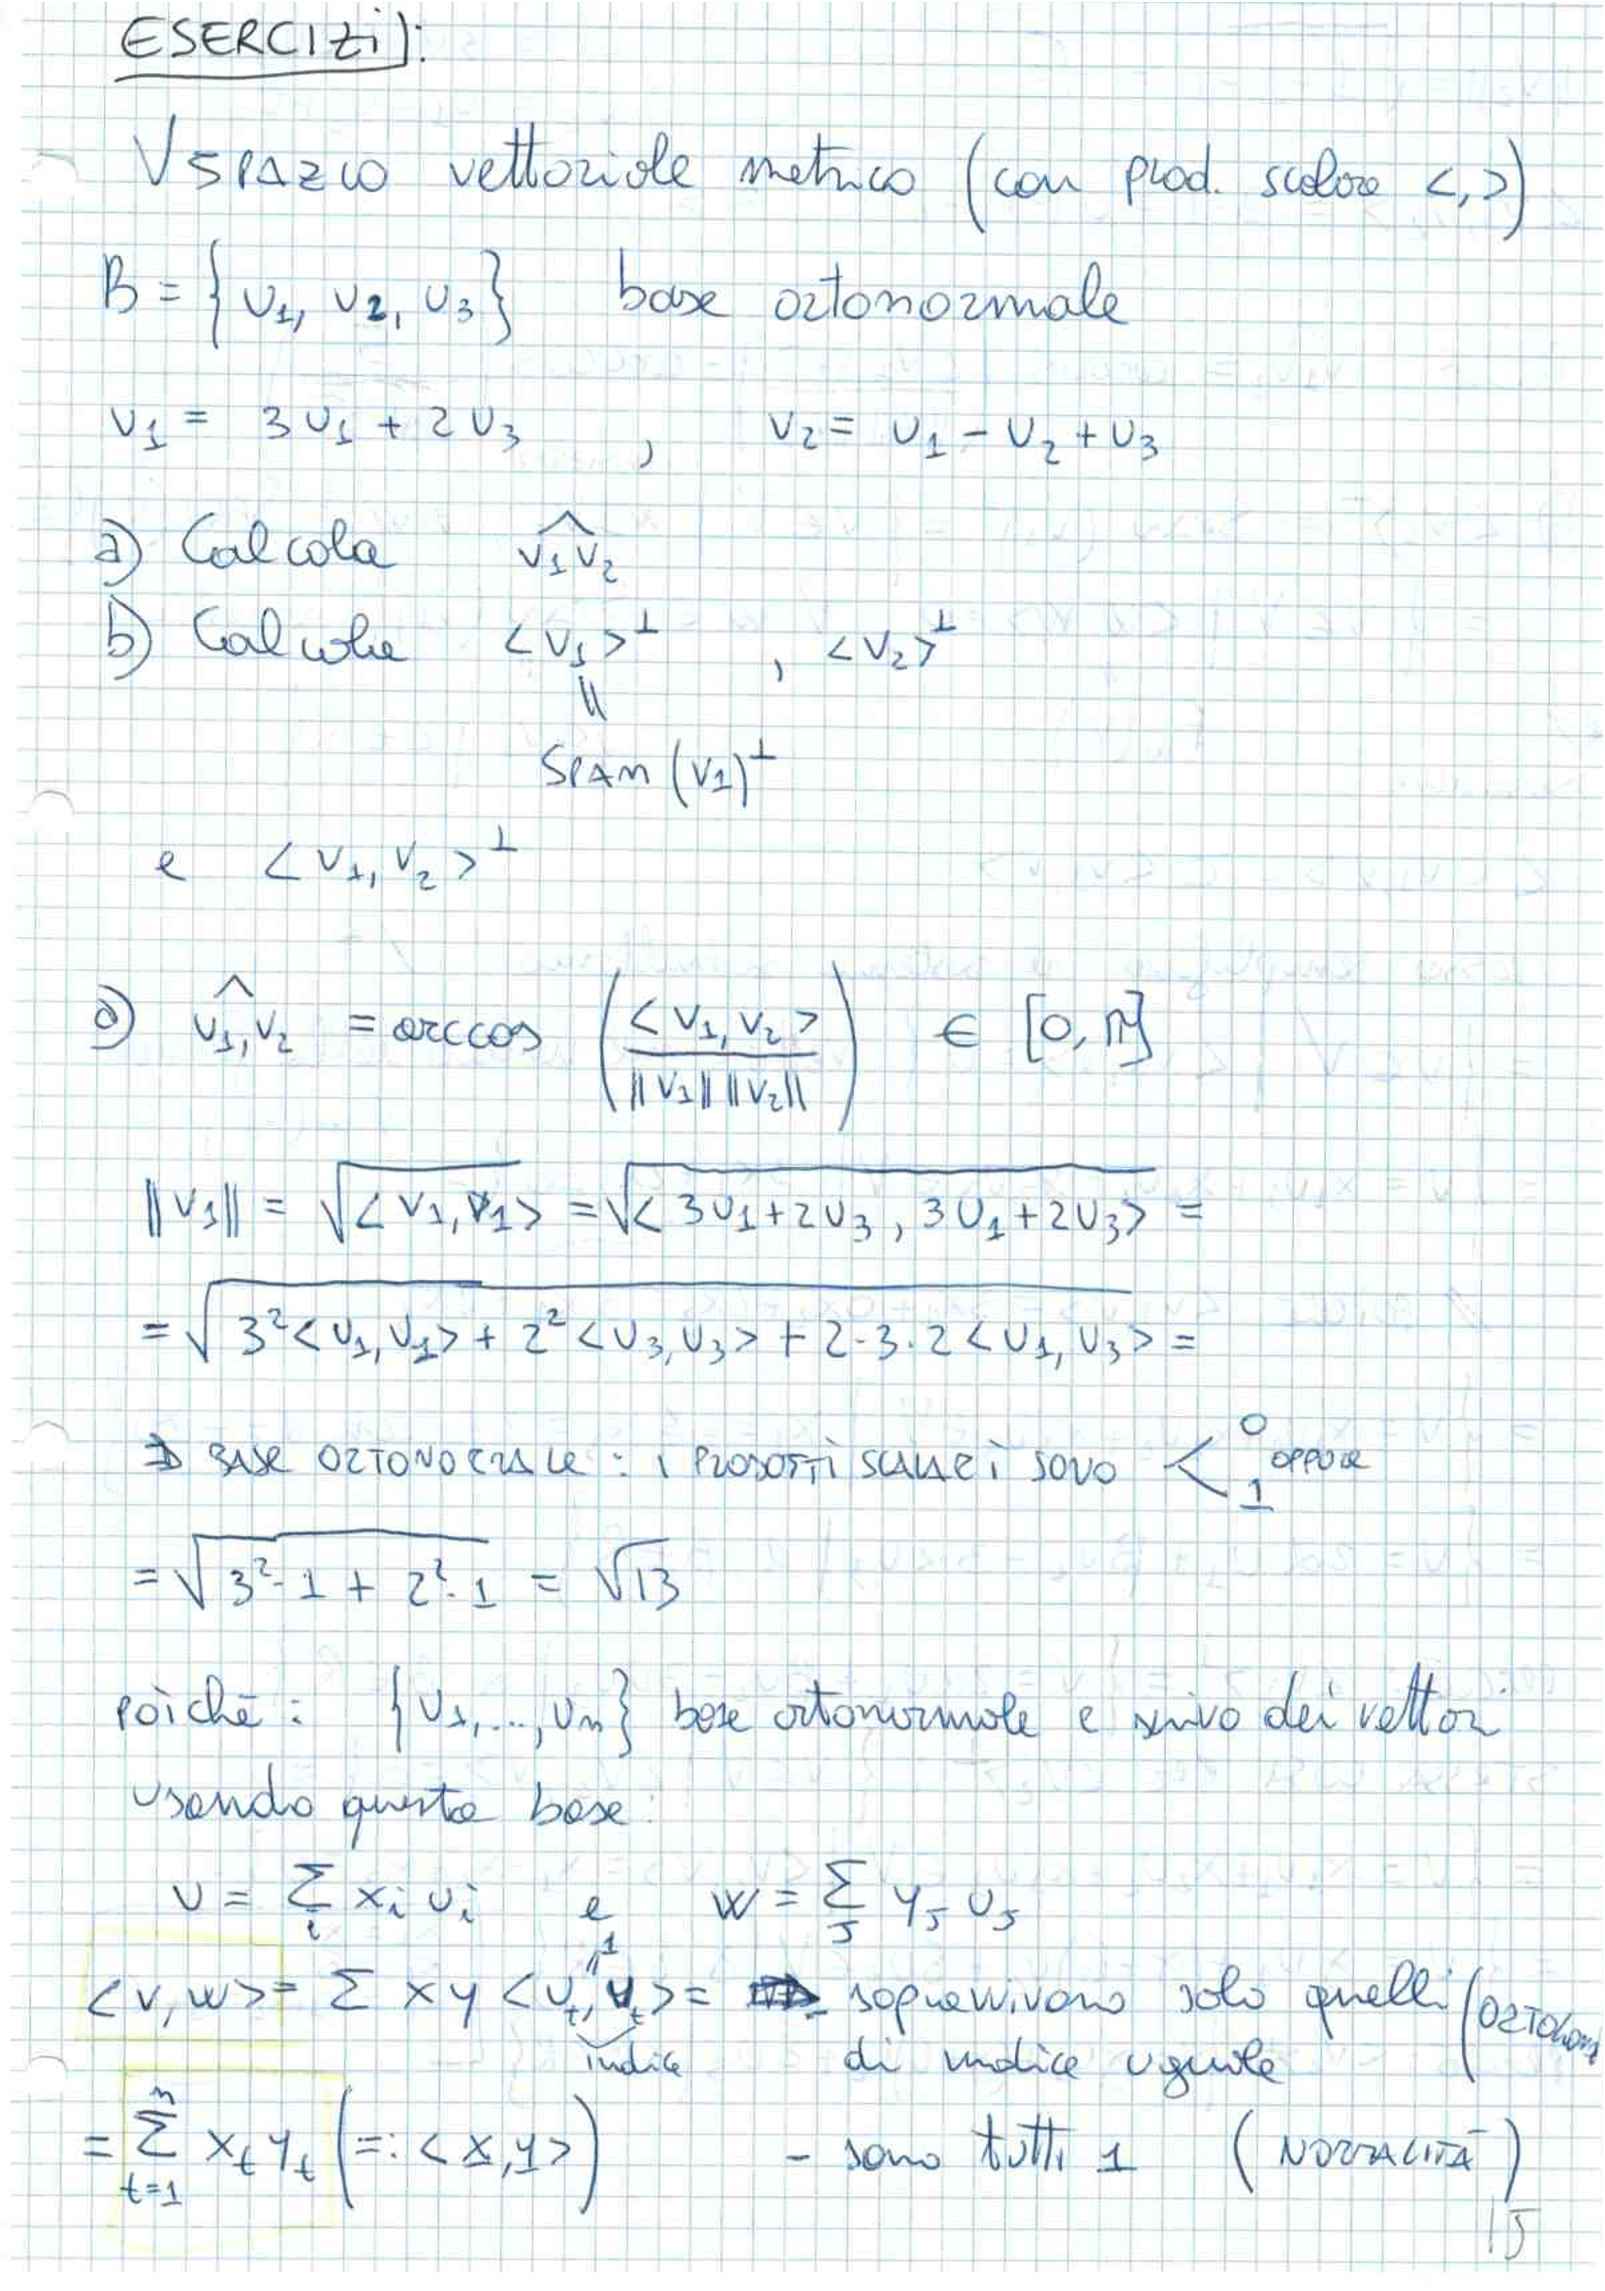 ESERCIZI):
V SPAZIO vettoriale metrico (con prod. scalare <,>)
B = {u₁, u₂, u₃} base ortonormale
v₁ = 3u₁ + 2u₃ , v₂ = u₁ - u₂ + u₃
a) Calcola v₁^v₂
b) Calcola <v₁>⊥ , <v₂>⊥
||
SPAN (v₁)⊥
e <v₁, v₂>⊥
a) v₁,^v₂ = arccos (<v₁, v₂> / ||v₁|| ||v₂||) ∈ [0, π]
||v₁|| = √<v₁, v₁> = √<3u₁+2u₃, 3u₁+2u₃> =
= √3²<u₁,u₁> + 2²<u₃,u₃> + 2·3·2<u₁,u₃> =
BASE ORTONORMALE : i PRODOTTI SCALARI SONO < 0 oppure 1
= √3²·1 + 2²·1 = √13
poichè : {u₁,...,uₙ} base ortonormale e scrivo dei vettori
usando questa base:
v = Σᵢ xᵢ uᵢ e w = Σⱼ yⱼ uⱼ
1
<v,w> = Σ x y <uₜ, uₜ> = sopravvivono solo quelli (ORTOGON
indice di indice uguale
= Σₜ₌₁ⁿ xₜ yₜ (=: <x,y>) - sono tutti 1 (NORMALITÀ)
15